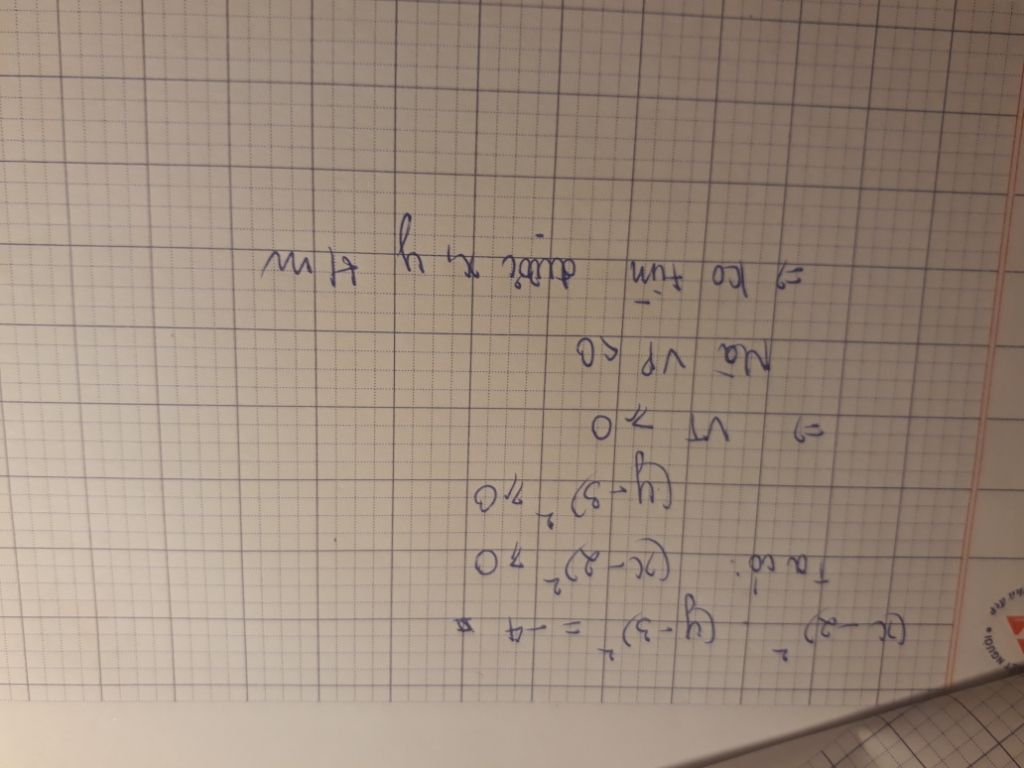 (x-2)² . (y-3)² = -4
ta có: (x-2)² ≥ 0
(y-3)² ≥ 0
=> VT ≥ 0
Mà VP < 0
=> ko tìm được x, y